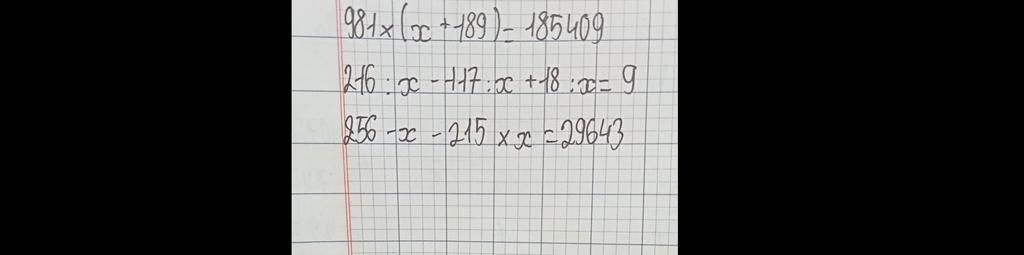 981 x (x + 189) = 185409
216 : x - 117 : x + 18 : x = 9
256 - x - 215 x x = 29643